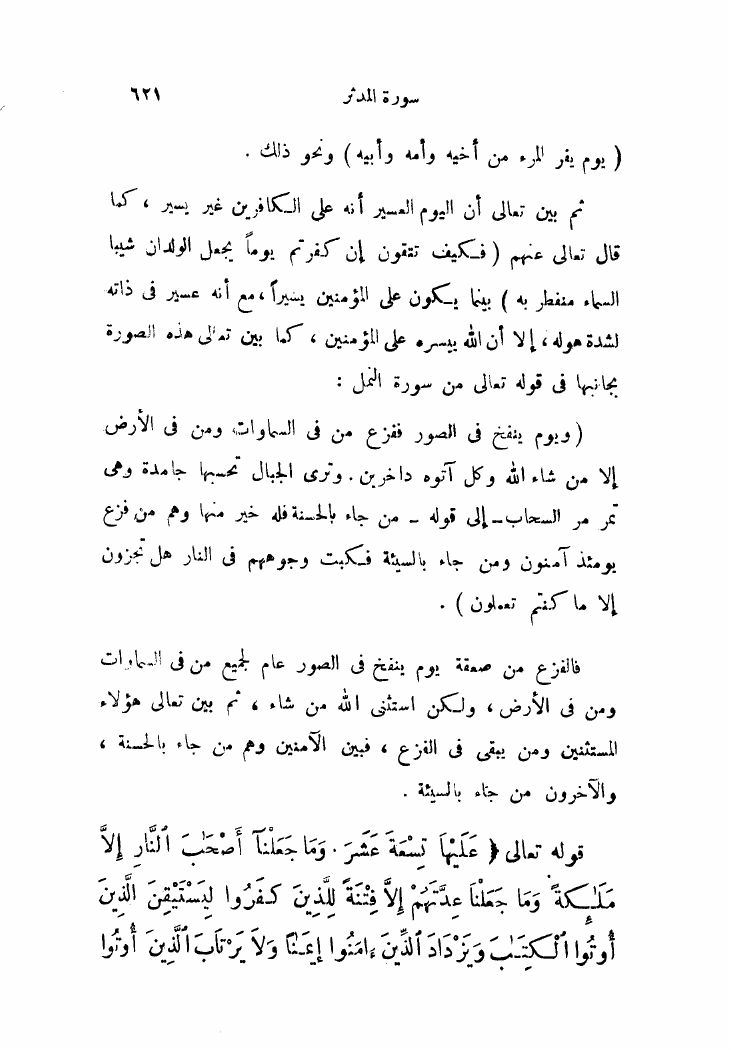 سورة المدثر ٦٢١
( يوم يفر المرء من أخيه وأمه وأبيه ) ونحو ذلك .
ثم بين تعالى أن اليوم العسير أنه على الكافرين غير يسير ، كما
قال تعالى عنهم ( فكيف تتقون إن كفرتم يوماً يجعل الولدان شيبا
السماء منفطر به ) بينما يكون على المؤمنين يسيراً ، مع أنه عسير فى ذاته
لشدة هوله ، إلا أن الله ييسره على المؤمنين ، كما بين تعالى هذه الصورة
بجانبها فى قوله تعالى من سورة النمل :
( ويوم ينفخ فى الصور ففزع من فى السماوات ومن فى الأرض
إلا من شاء الله وكل آتوه داخرين . وترى الجبال تحسبها جامدة وهى
تمر مر السحاب ــ إلى قوله ــ من جاء بالحسنة فله خير منها وهم من فزع
يومئذ آمنون ومن جاء بالسيئة فكبت وجوههم فى النار هل تجزون
إلا ما كنتم تعملون ) .
فالفزع من صعقة يوم ينفخ فى الصور عام لجميع من فى السماوات
ومن فى الأرض ، ولكن استثنى الله من شاء ، ثم بين تعالى هؤلاء
المستثنين ومن يبقى فى الفزع ، فبين الآمنين وهم من جاء بالحسنة ،
والآخرون من جاء بالسيئة .
قوله تعالى ﴿ عَلَيْهَا تِسْعَةَ عَشَرَ . وَمَا جَعَلْنَآ أَصْحَٰبَ ٱلنَّارِ إِلَّا
مَلَٰٓئِكَةً وَمَا جَعَلْنَا عِدَّتَهُمْ إِلَّا فِتْنَةً لِّلَّذِينَ كَفَرُوا لِيَسْتَيْقِنَ الَّذِينَ
أُوتُوا ٱلْكِتَٰبَ وَيَزْدَادَ ٱلَّذِينَ ءَامَنُوا إِيمَٰنًا وَلَا يَرْتَابَ ٱلَّذِينَ أُوتُوا